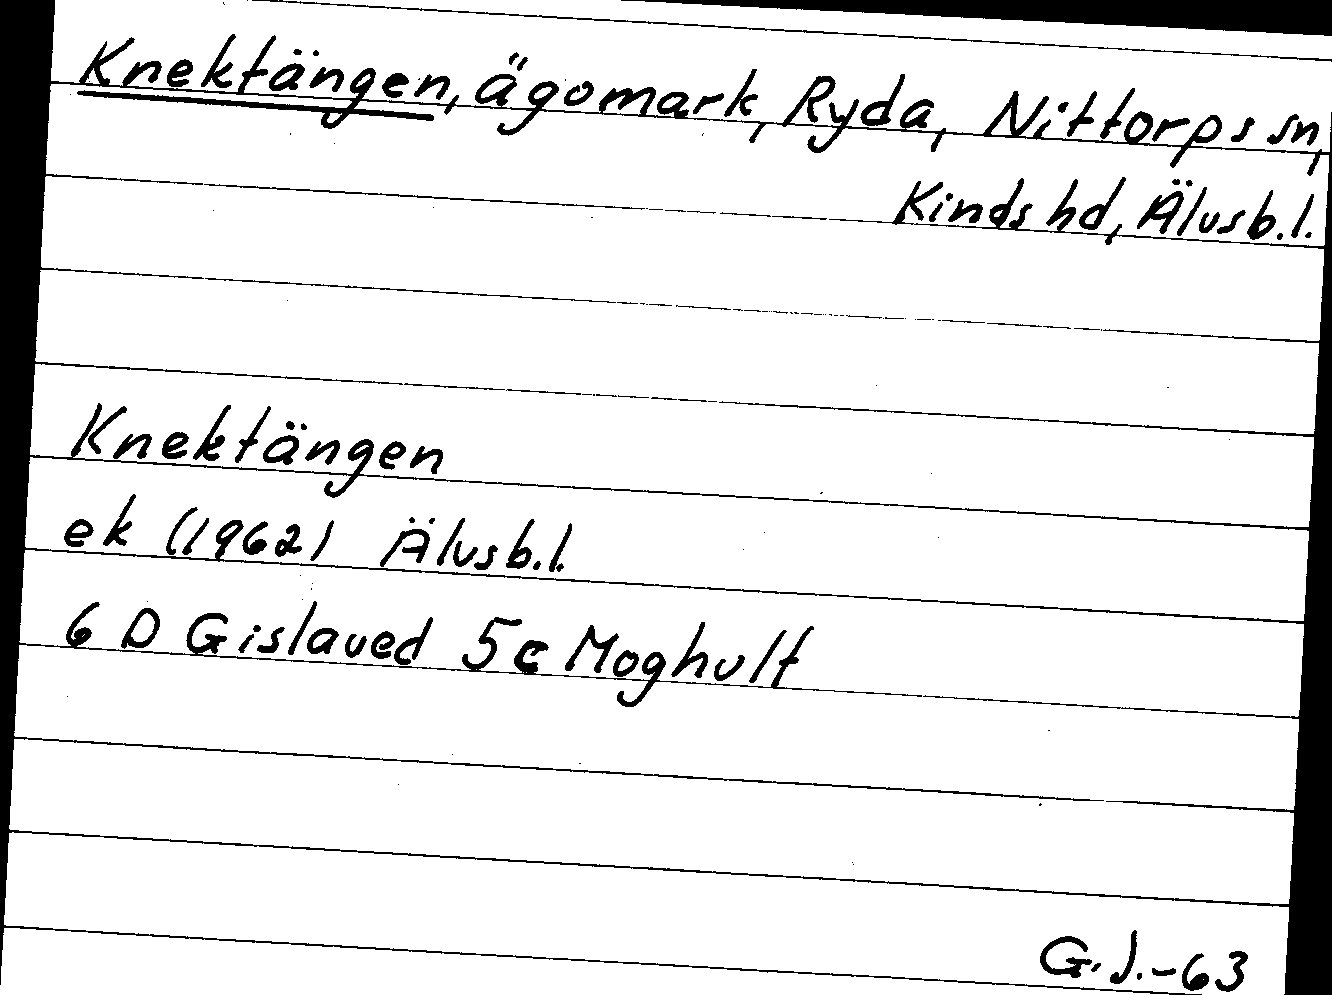 Knektängen, ägomark, Ryda, Nittorps sn,
Kinds hd, Älvsb.l.
Knektängen
ek (1962) Älvsb.l.
6 D Gislaved 5c Moghult
G.J.-63